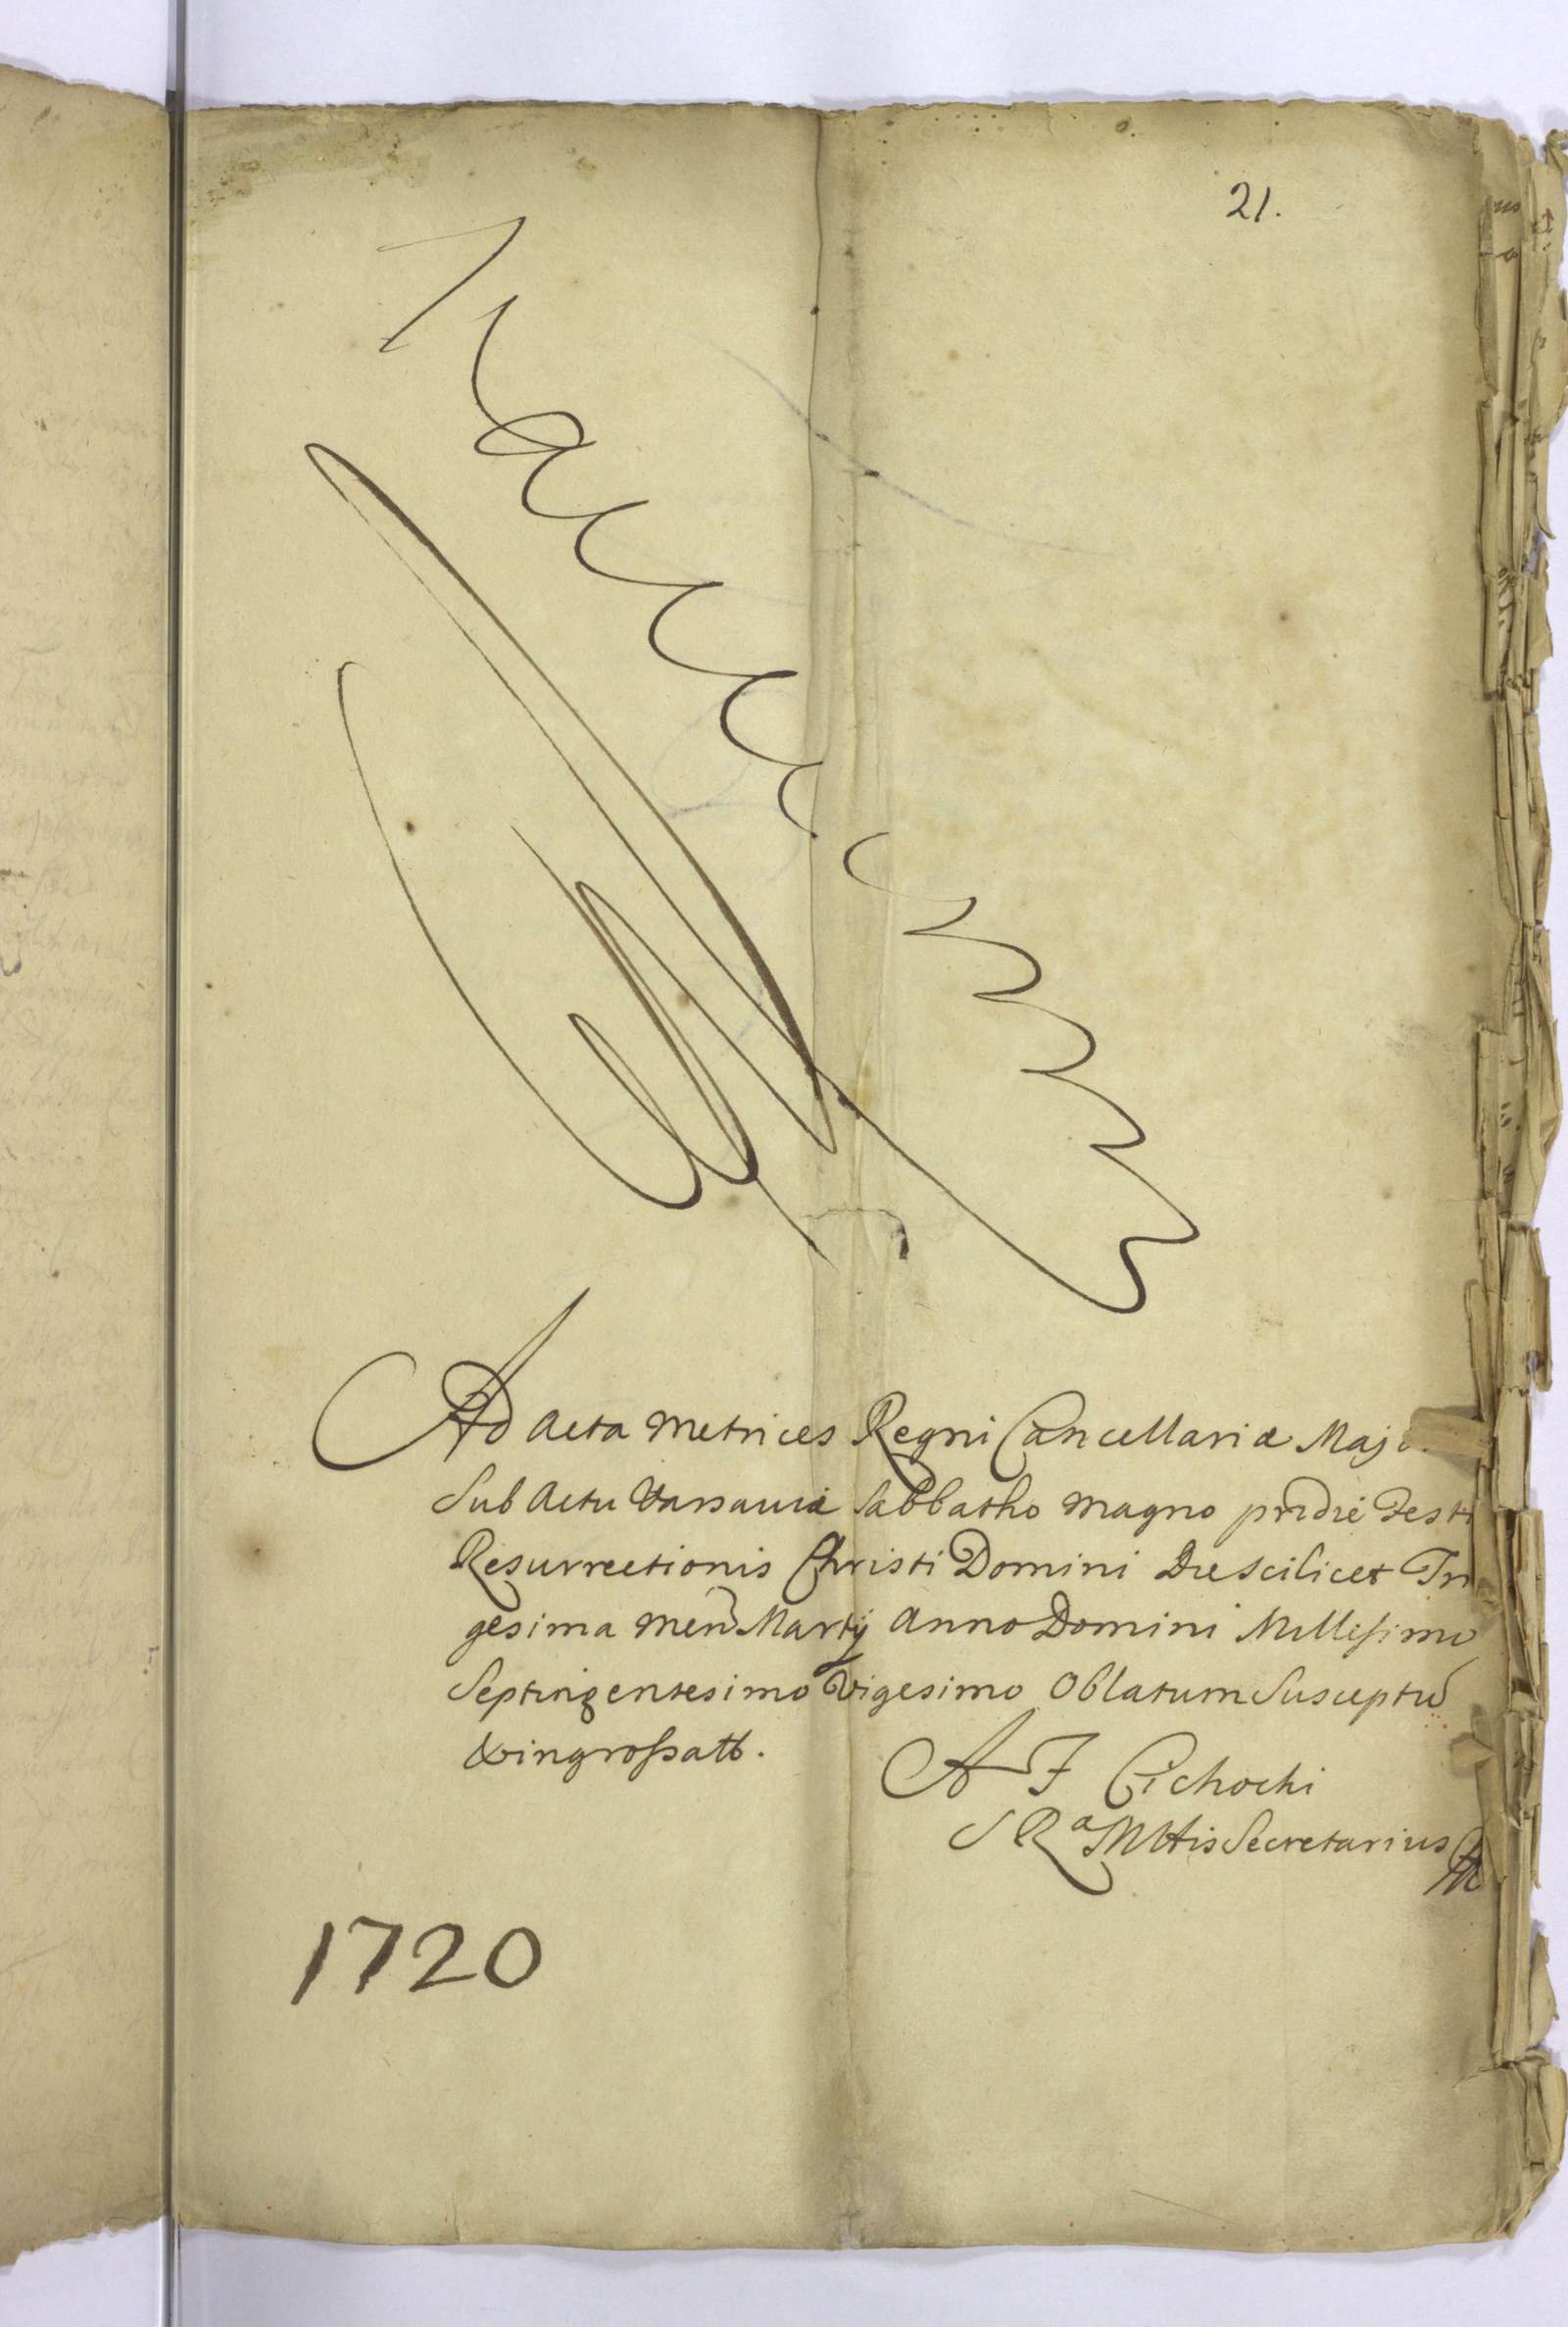 21.
Ad Acta Metrices Regni Cancellariæ Majo
Sub Actu Varsaviæ Sabbatho magno pridie Festi
Resurrectionis Christi Domini Die scilicet Tri
gesima mens Martij Anno Domini Millesimo
Septingentesimo Vigesimo Oblatum Susceptũ
& ingrossatt.
A F Cichocki
S R M Mttis Secretarius
1720